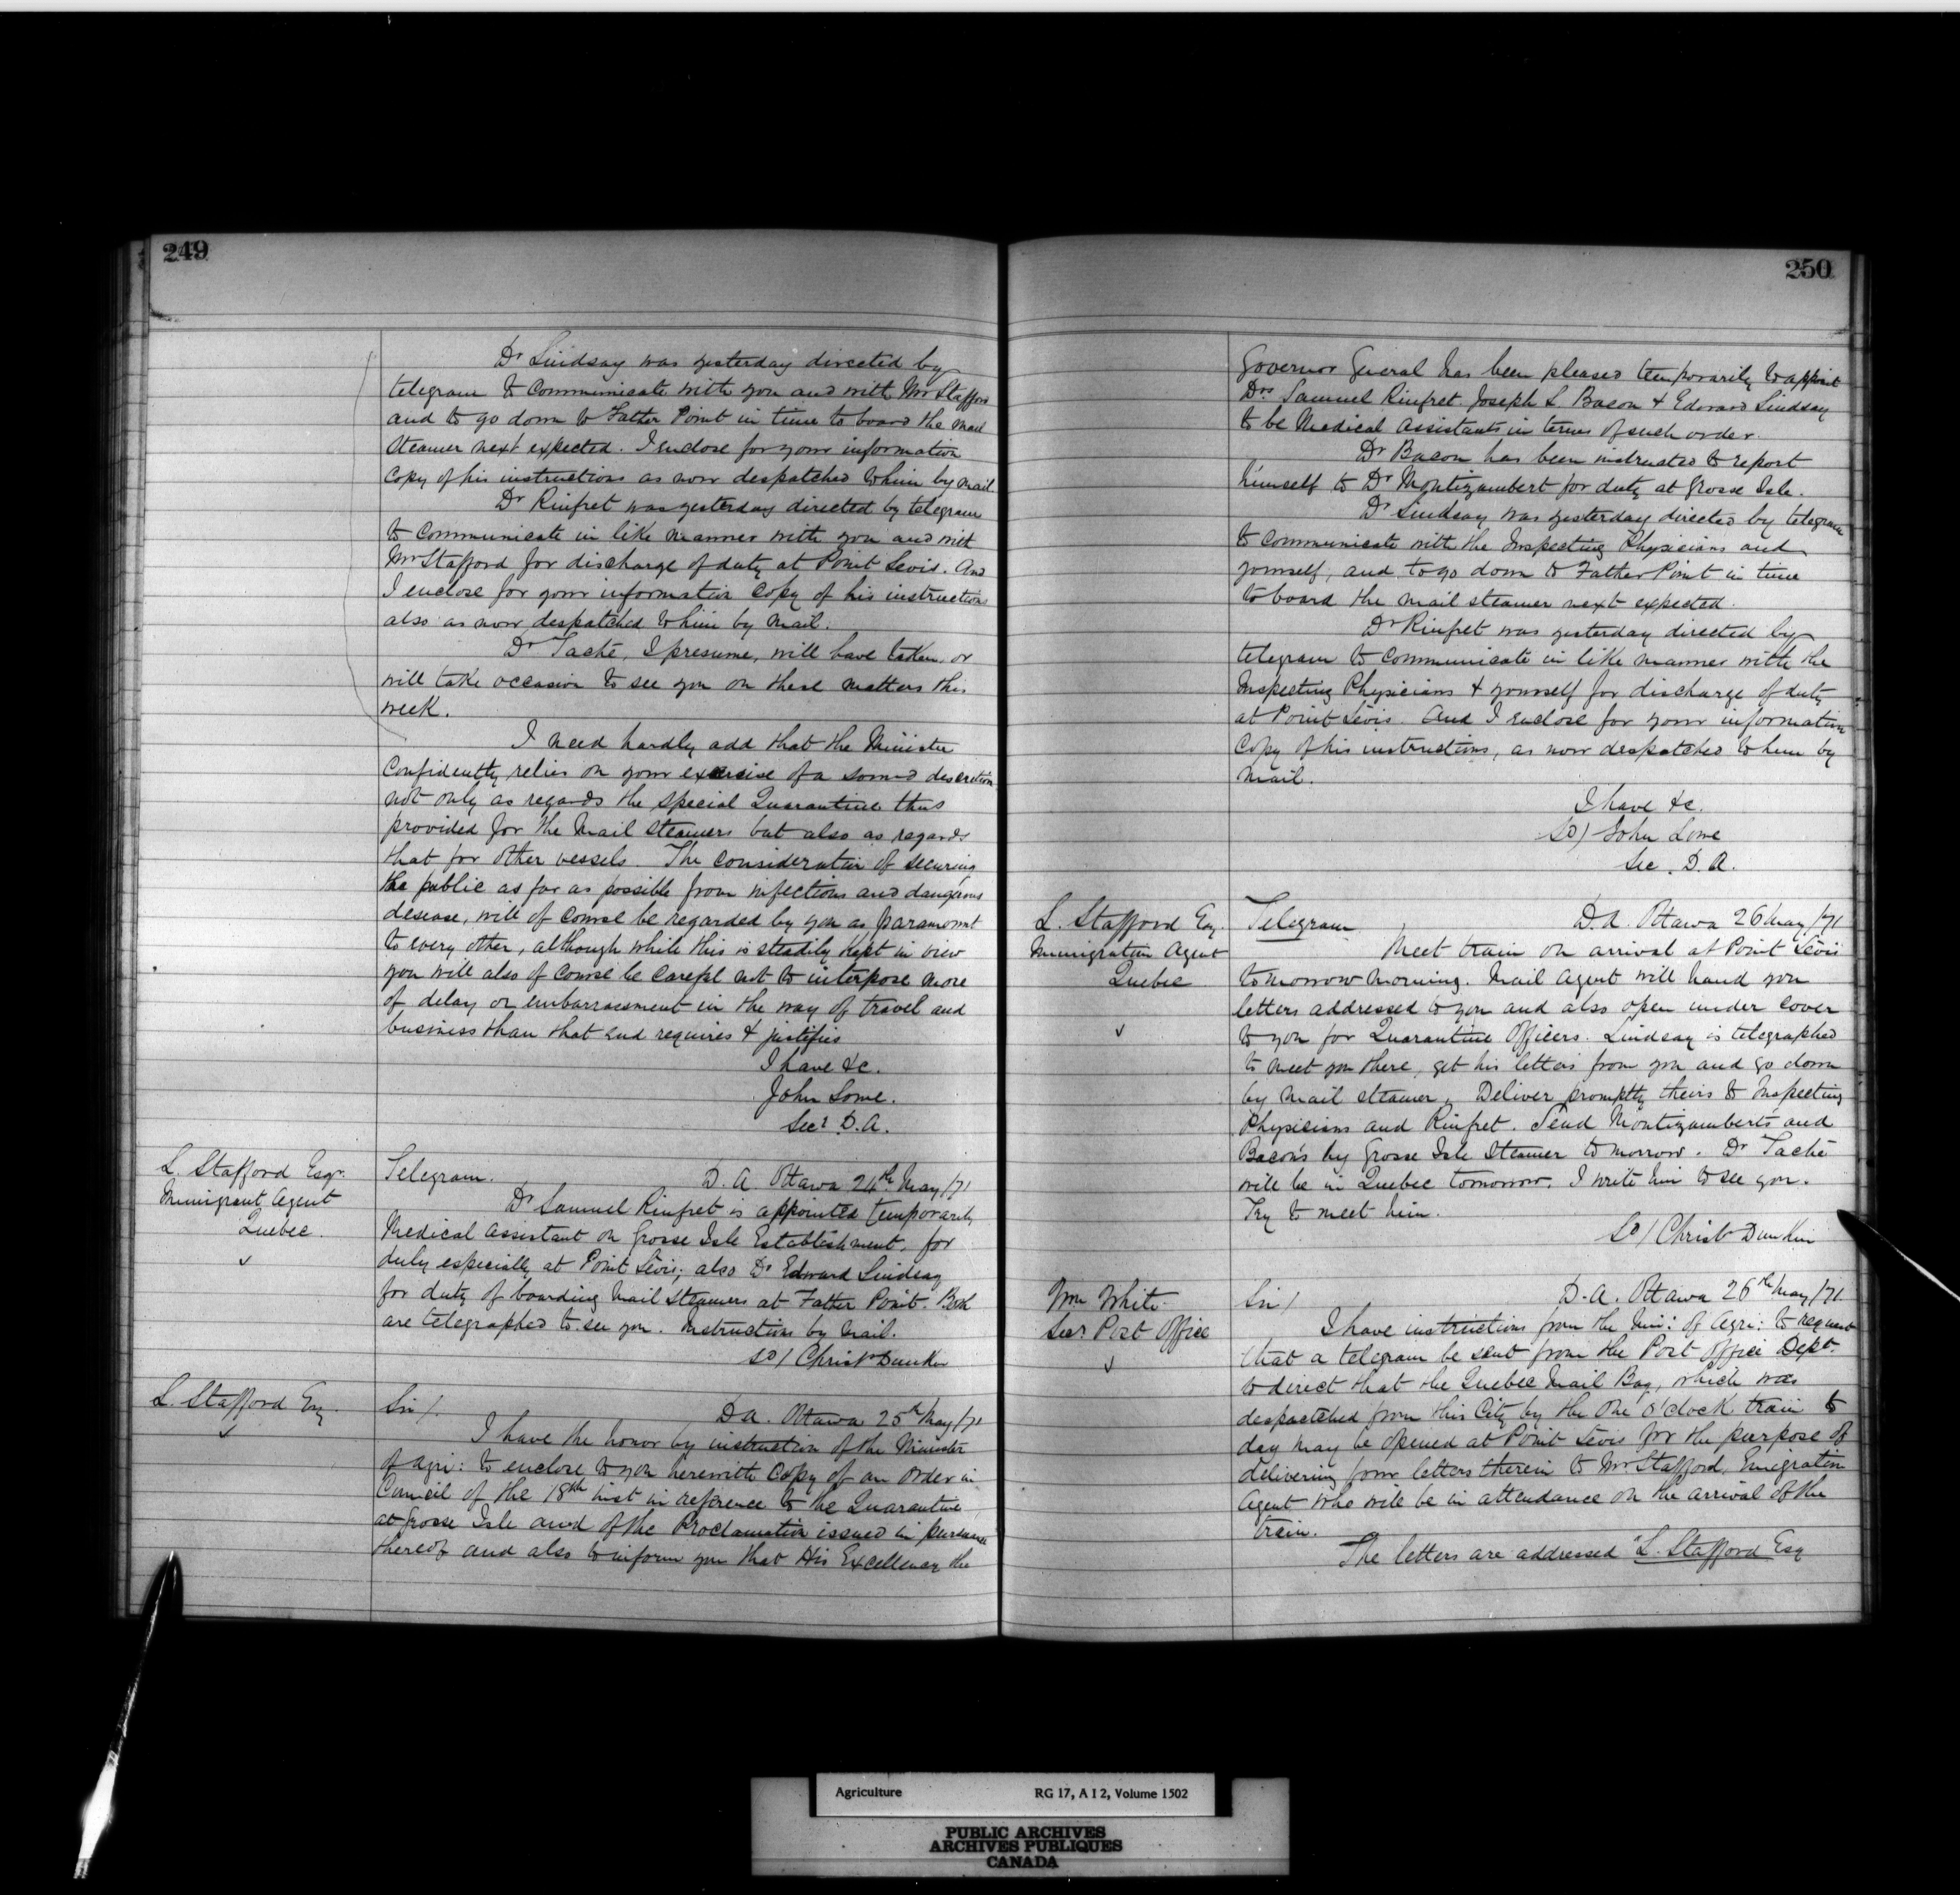 249
Dr Lindsay was yesterday directed by
telegram to communicate with you and with Mr Stafford
and to go down to Father Point in time to board the mail
steamer next expected. I enclose for your information
copy of his instructions as now despatched to him by mail.
Dr Rinfret was yesterday directed by telegram
to communicate in like manner with you and with
Mr Stafford for discharge of duty at Point Levis. And
I enclose for your information copy of his instructions
also as now despatched to him by mail.
Dr Taché, I presume, will have taken, or
will take occasion to see you on these matters this
week.
I need hardly add that the Minister
confidently relies on your exercise of a sound descretion
not only as regards the special Quarantine thus
provided for the Mail Steamers but also as regards
that for other vessels. The consideration of securing
the public as far as possible from infectious and dangerous
disease, will of course be regarded by you as paramount
to every other, although while this is steadily kept in view
you will also of course be careful not to interpose more
of delay or embarrassment in the way of travel and
business than that end requires & justifies
I have &c.
John Lowe.
Secr D.A.
L. Stafford Esqr.
Immigrant Agent
Quebec.
Telegram. D. A. Ottawa 24th May/71
Dr Samuel Rinfret is appointed temporarily
Medical Assistant on Grosse Isle Establishment, for
duty especially at Point Levis; also Dr Edward Lindsay
for duty of boarding Mail Steamers at Father Point. Both
are telegraphed to see you. Instructions by Mail.
SD/ Christ Dunkin
L. Stafford Esq
Sir/. D.A. Ottawa 25th May/71
I have the honor by instruction of the Minister
of Agri: to enclose to you herewith copy of an Order in
Council of the 18th inst in reference to the Quarantine
at Grosse Isle and of the Proclamation issued in pursuance
thereof and also to inform you that His Excellency the
250
Governor General has been pleased temporarily to appoint
Drs Samuel Rinfret. Joseph L. Bacon & Edward Lindsay
to be Medical Assistants in terms of such order.
Dr Bacon has been instructed to report
himself to Dr Montizambert for duty at Grosse Isle.
Dr Lindsay was yesterday directed by telegram
to communicate with the Inspecting Physicians and
yourself, and to go down to Father Point in time
to board the mail steamer next expected.
Dr Rinfret was yesterday directed by
telegram to communicate in like manner with the
Inspecting Physicians & yourself for discharge of duty
at Point Levis. And I enclose for your information
copy of his instructions, as now despatched to him by
mail.
I have &c.
SD/ John Lowe
Sec. D.A.
L. Stafford Esq.
Immigration Agent
Quebec
Telegram D.A. Ottawa 26 May/71
Meet train on arrival at Point Levis
to morrow morning. Mail Agent will hand you
letters addressed to you and also open under cover
to you for Quarantine Officers. Lindsay is telegraphed
to meet you there, get his letters from you and go down
by Mail steamer. Deliver promptly theirs to Inspecting
Physicians and Rinfret. Send Montizambert's and
Bacon's by Grosse Isle Steamer to morrow. Dr Taché
will be in Quebec tomorrow. I write him to see you.
Try to meet him.
SD/ Christ Dunkin
Wm White.
Secr. Post Office
Sir/ D.A. Ottawa 26th May/71.
I have instructions from the Min: of Agri: to request
that a telegram be sent from the Post Office Dept.
to direct that the Quebec Mail Bag, which was
despactched from this City by the One o'clock train to
day may be opened at Point Levis for the purpose of
delivering four letters therein to Mr. Stafford, Emigration
Agent who will be in attendance on the arrival of the
train.
The letters are addressed "L. Stafford Esq
Agriculture RG 17, A I 2, Volume 1502
PUBLIC ARCHIVES
ARCHIVES PUBLIQUES
CANADA